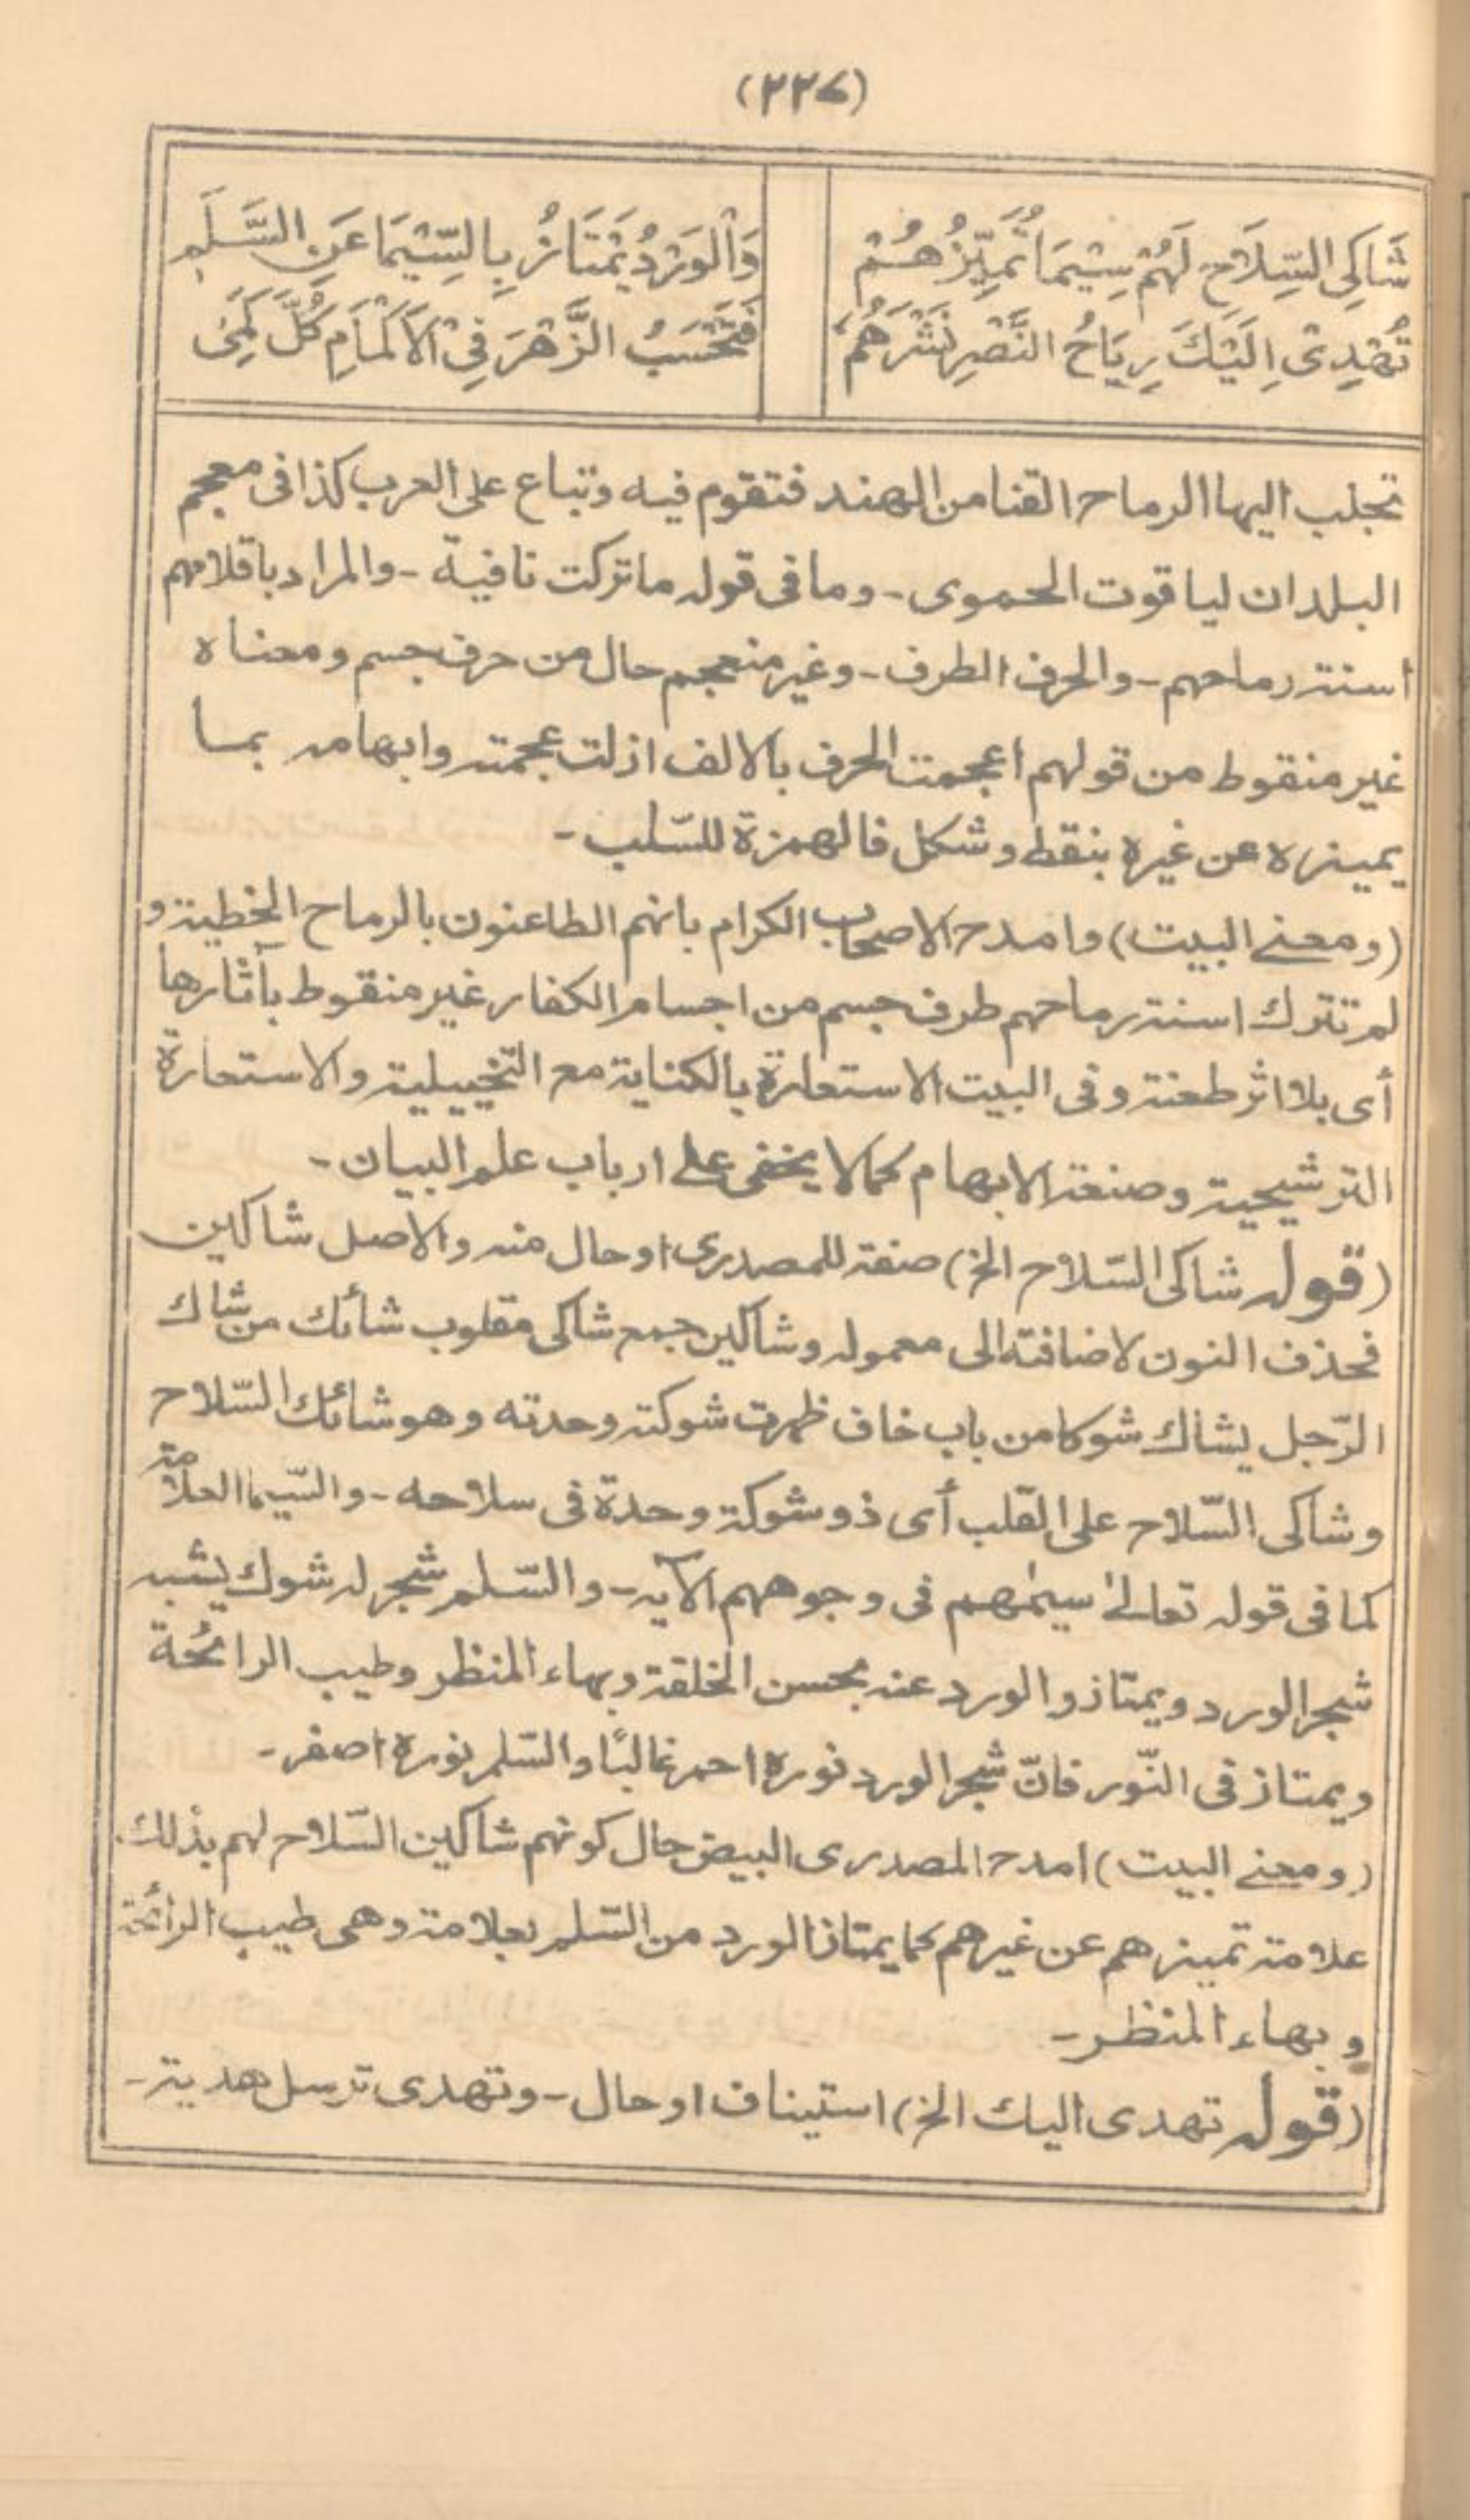 (٢٢٧)
شَاكِى السِّلَاحِ لَهُمْ سِيْمَا تُمَيِّزُهُمْ وَالْوَرْدُ يَمْتَازُ بِالسِّيْمَا عَنِ السَّلَمِ
تُهْدِىْ اِلَيْكَ رِيَاحُ النَّصْرِ نَشْرَهُمُ فَتَحْسَبُ الزَّهْرَ فِى الْاَكْمَامِ كُلَّ كَمِىْ
تجلب اليها الرماح القنا من الهند فتقوم فيه وتباع على العرب كذا فى معجم
البلدان لياقوت الحموى - وما فى قوله ما تركت نافية - والمراد باقلامهم
اسنة رماحهم - والحرف الطرف - وغير منعجم حال من حرف جسم ومعناه
غير منقوط من قولهم اعجمت الحرف بالالف ازلت عجمته وابهامه بما
يميزه عن غيره بنقط وشكل فالهمزة للسّلب -
(ومعنى البيت) وامدح الاصحاب الكرام بانهم الطاعنون بالرماح الخطية و
لم تترك اسنة رماحهم طرف جسم من اجسام الكفار غير منقوط بآثارها
أى بلا اثر طعنة وفى البيت الاستعارة بالكناية مع التخييلية والاستعارة
الترشيحية وصنعة الابهام كما لا يخفى على ارباب علم البيان -
(قوله شاكى السّلاح الخ) صفة للمصدرى او حال منه والاصل شاكين
فحذف النون لاضافته الى معموله وشاكين جمع شاكى مقلوب شائك من شاك
الرّجل يشاك شوكا من باب خاف ظهرت شوكته وحدته وهو شائك السّلاح
وشاكى السّلاح على القلب أى ذو شوكة وحدة فى سلاحه - والسّيما العلامة
كما فى قوله تعالىٰ سيمٰهم فى وجوههم الآيه - والسّلم شجر له شوك يشبه
شجر الورد ويمتاز والورد عنه بحسن الخلقة وبهاء المنظر وطيب الرائحة
ويمتاز فى النّور فانّ شجر الورد نوره احمر غالبًا والسّلم نوره اصفر -
(ومعنى البيت) امدح المصدرى البيض حال كونهم شاكين السّلاح لهم بذلك
علامة تميزهم عن غيرهم كما يمتاز الورد من السّلم بعلامة وهى طيب الرائحة
وبهاء المنظر -
(قوله تهدى اليك الخ) استيناف او حال - وتهدى ترسل هدية -